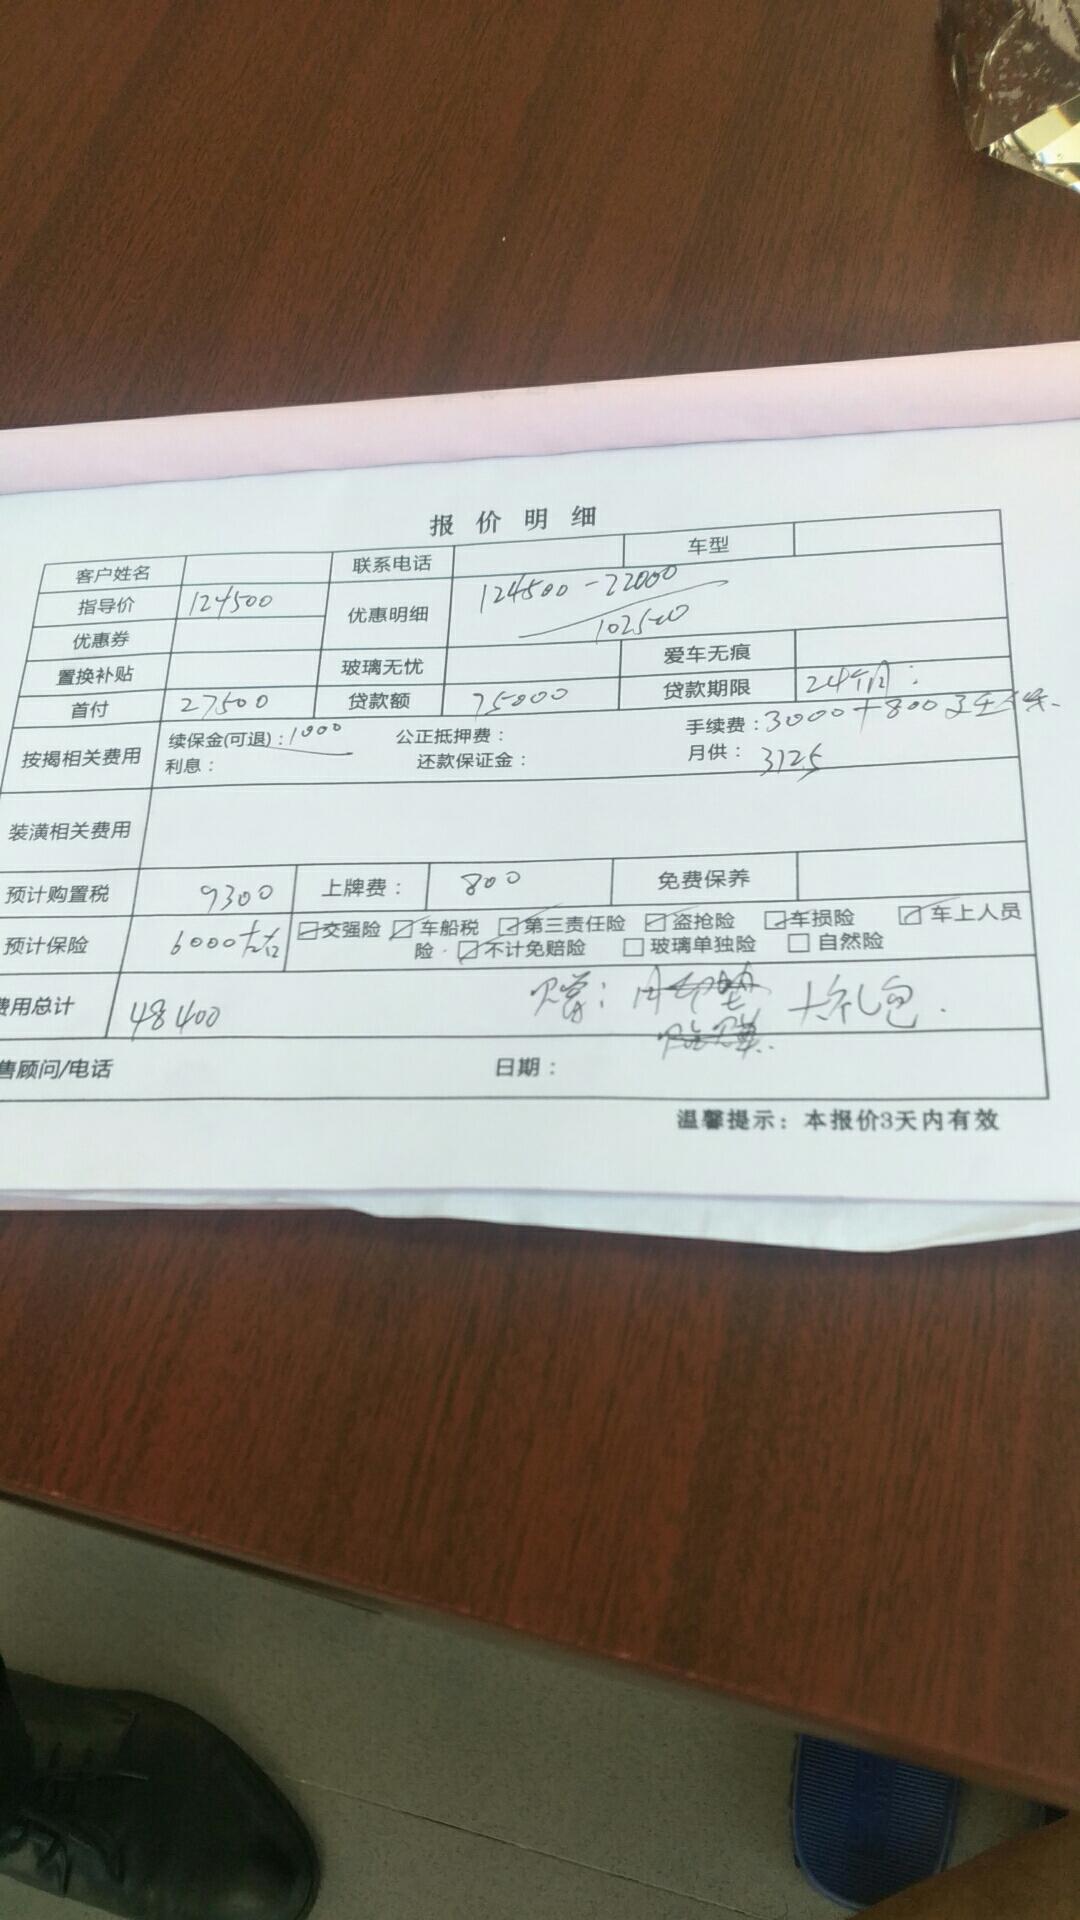 报价明细
客户姓名 联系电话 车型
指导价 124500 优惠明细 124500-22000
102500
优惠券
置换补贴 玻璃无忧 爱车无痕
首付 27500 贷款额 75000 贷款期限 24个月
按揭相关费用 续保金(可退)：1000 公正抵押费： 手续费：3000+800
利息： 还款保证金： 月供：3125
装潢相关费用
预计购置税 9300 上牌费： 800 免费保养
预计保险 6000左右 ☑交强险 ☑车船税 ☑第三责任险 ☑盗抢险 ☑车损险 ☑车上人员
险 ☑不计免赔险 ☐玻璃单独险 ☐自然险
费用总计 48400 赠： 大礼包.
售顾问/电话 日期：
温馨提示：本报价3天内有效